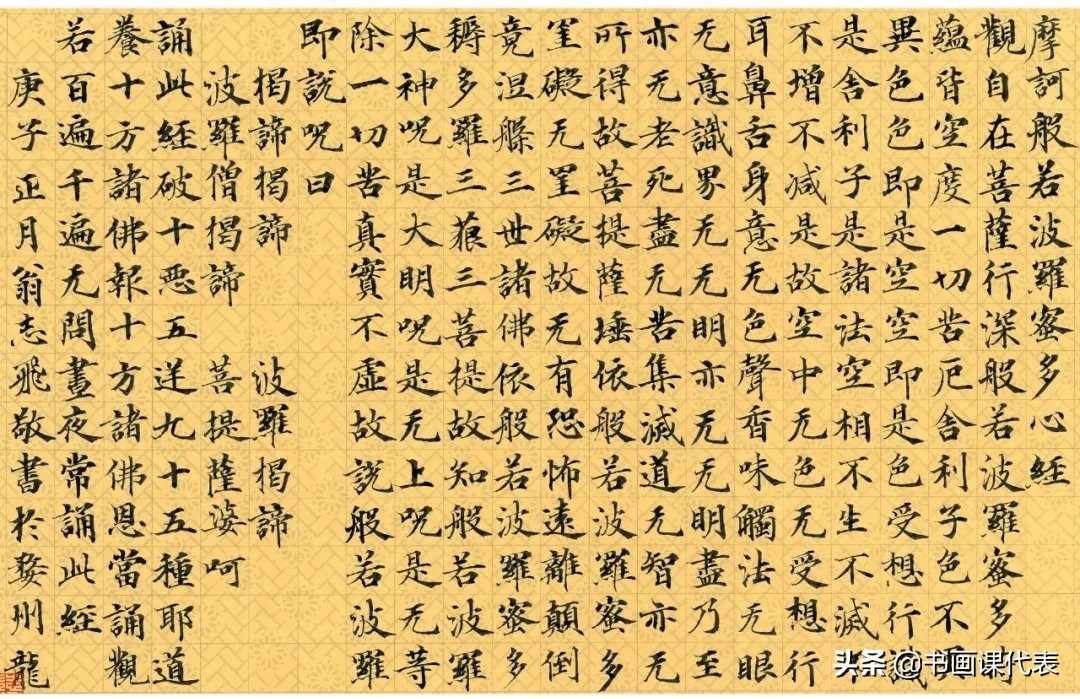 摩訶般若波羅蜜多心經
觀自在菩薩行深般若波羅蜜多
蘊皆空度一切苦厄舍利子色不
異色色即是空空即是色受想行
是舍利子是諸法空相不生不滅
不增不減是故空中无色无受想行
耳鼻舌身意无色聲香味觸法无眼
无意識界无无明亦无无明盡乃至
亦无老死盡无苦集滅道无智亦无
所得故菩提薩埵依般若波羅蜜多
罣礙无罣礙故无有恐怖遠離顛倒
竟涅槃三世諸佛依般若波羅蜜多
耨多羅三藐三菩提故知般若波羅
大神呪是大明呪是无上呪是无等
除一切苦真實不虛故說般若波羅
即說呪曰
揭諦揭諦 波羅揭諦
波羅僧揭諦 菩提薩婆呵
誦此經破十惡五逆九十五種耶道
養十方諸佛報十方諸佛恩當誦觀
若百遍千遍无間晝夜常誦此經
庚子正月翁志飛敬書於婺州龍
头条 @书画课代表